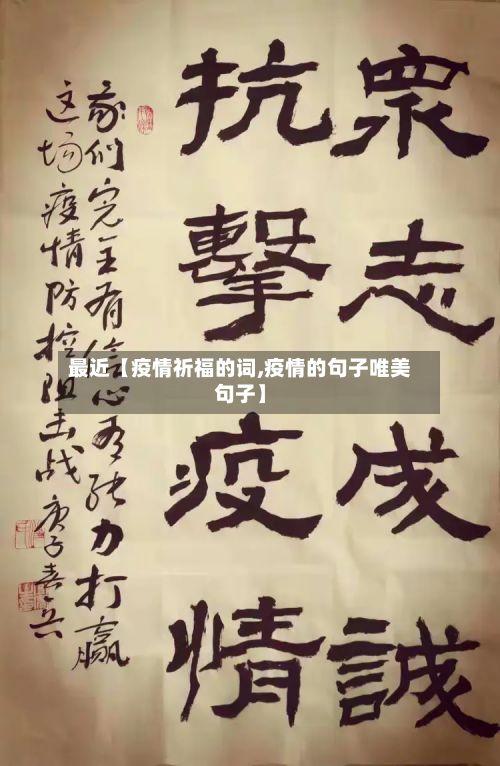 眾志成誠
抗擊疫情
我们完全有信心有能力打赢
这场疫情防控阻击战 庚子
最近【疫情祈福的词,疫情的句子唯美
句子】